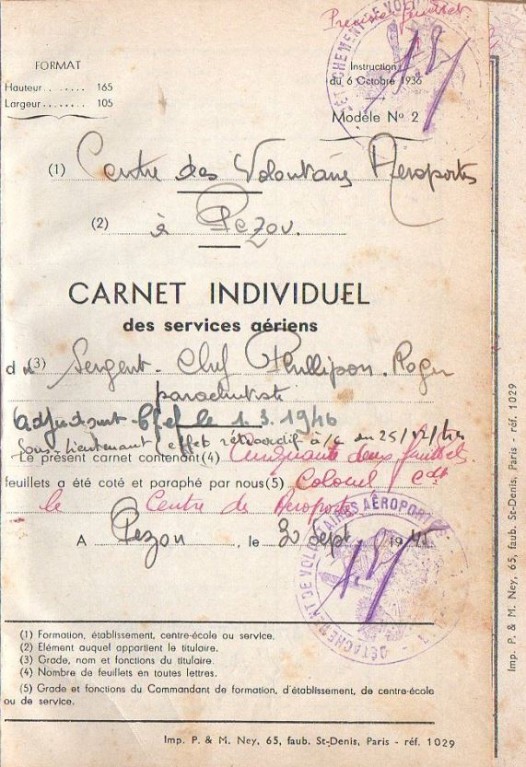 Première feuillet
FORMAT
Hauteur ....... 165
Largeur ....... 105
Instruction
du 6 Octobre 1936
Modèle No 2
DÉTACHEMENT DE VOL
(1) Centre des Volontaires Aéroportés
(2) à Pezou.
CARNET INDIVIDUEL
des services aériens
d u (3) Sergent-Chef Phillipon Roger
parachutiste
adjudant-Chef le 1.3.1946
Sous-Lieutenant effet rétroactif a/c du 25/12/
Le présent carnet contenant (4) Cinquante deux feuillets
feuillets a été coté et paraphé par nous (5) Colonel Cdt
le Centre de Aéroportés
A Pezou, le 30 Sept 1945
DÉTACHEMENT DE VOLONTAIRES AÉROPORTÉS
(1) Formation, établissement, centre-école ou service.
(2) Elément auquel appartient le titulaire.
(3) Grade, nom et fonctions du titulaire.
(4) Nombre de feuillets en toutes lettres.
(5) Grade et fonctions du Commandant de formation, d'établissement, de centre-école
ou de service.
Imp. P. & M. Ney, 65, faub. St-Denis, Paris - réf. 1029
Imp. P. & M. Ney, 65, faub. St-Denis, Paris - réf. 1029